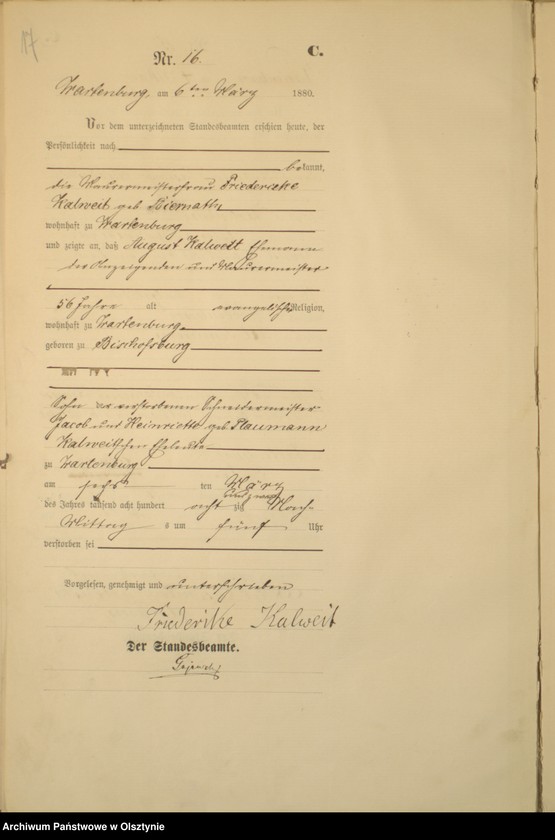 17
C.
Nr. 16.
Wartenburg, am 6ten März 1880.
Vor dem unterzeichneten Standesbeamten erschien heute, der
Persönlichkeit nach
bekannt,
die Maurermeisterfrau Friedericke
Kalweit geb Biernath
wohnhaft zu Wartenburg
und zeigte an, daß August Kalweit Ehemann
der Anzeigenden und Maurermeister
56 Jahre alt evangelischer Religion,
wohnhaft zu Wartenburg
geboren zu Bischofsburg
Sohn verstorbenen Schneidermeister
Jacob und Heinriette geb Plaumann
Kalweitschen Eheleute
zu Wartenburg
am sechs ten März
des Jahres tausend acht hundert acht zig und zwar Nach-
Mittag s um fünf Uhr
verstorben sei
Vorgelesen, genehmigt und unterschrieben
Friederike Kalweit
Der Standesbeamte.
Archiwum Państwowe w Olsztynie